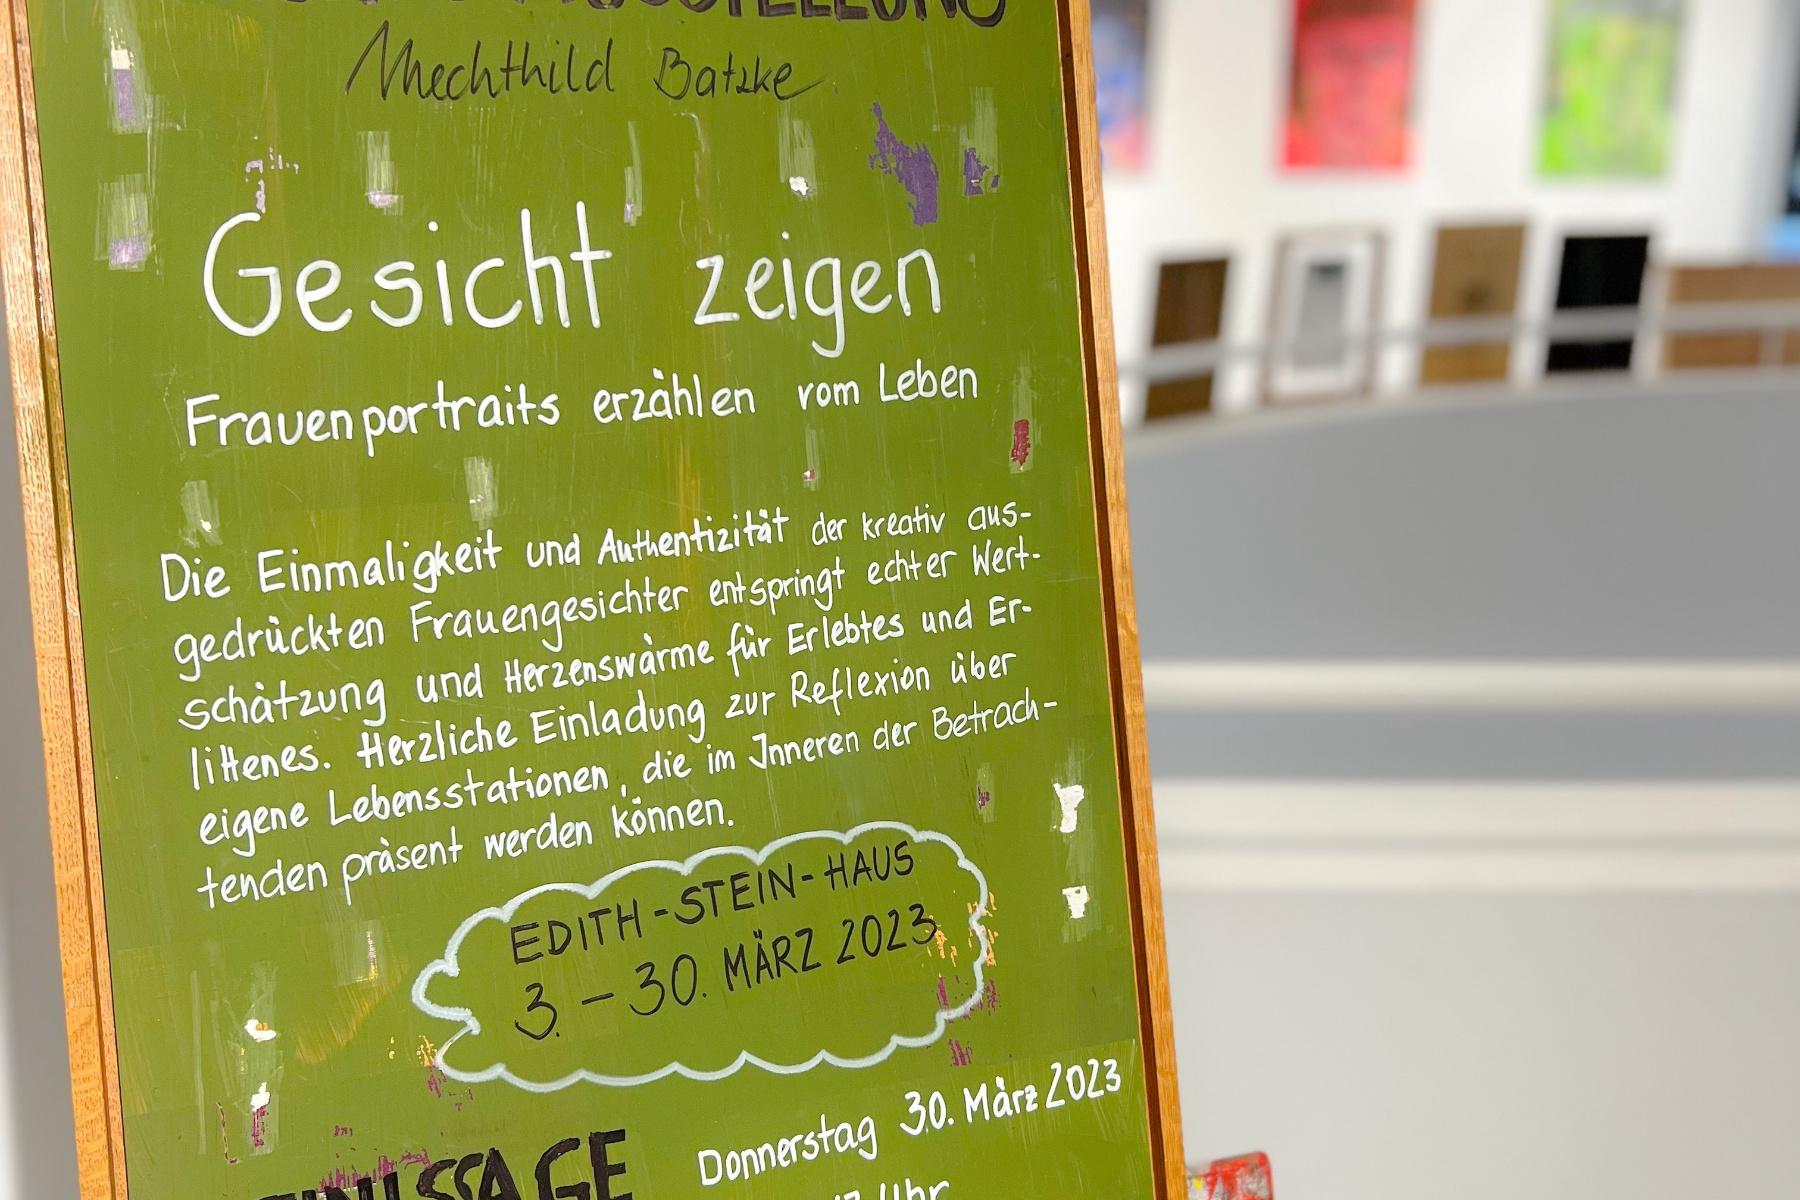 AUSSTELLUNG
Mechthild Batzke
Gesicht zeigen
Frauenportraits erzählen vom Leben
Die Einmaligkeit und Authentizität der kreativ aus-
gedrückten Frauengesichter entspringt echter Wert-
schätzung und Herzenswärme für Erlebtes und Er-
littenes. Herzliche Einladung zur Reflexion über
eigene Lebensstationen, die im Inneren der Betrach-
tenden präsent werden können.
EDITH-STEIN-HAUS
3. - 30. MÄRZ 2023
Donnerstag 30. März 2023
FINISSAGE
Uhr